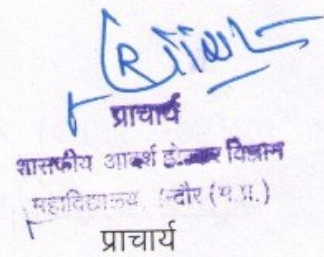 प्राचार्य
शासकीय आदर्श होल्कर विज्ञान
महाविद्यालय, इन्दौर (म.प्र.)
प्राचार्य